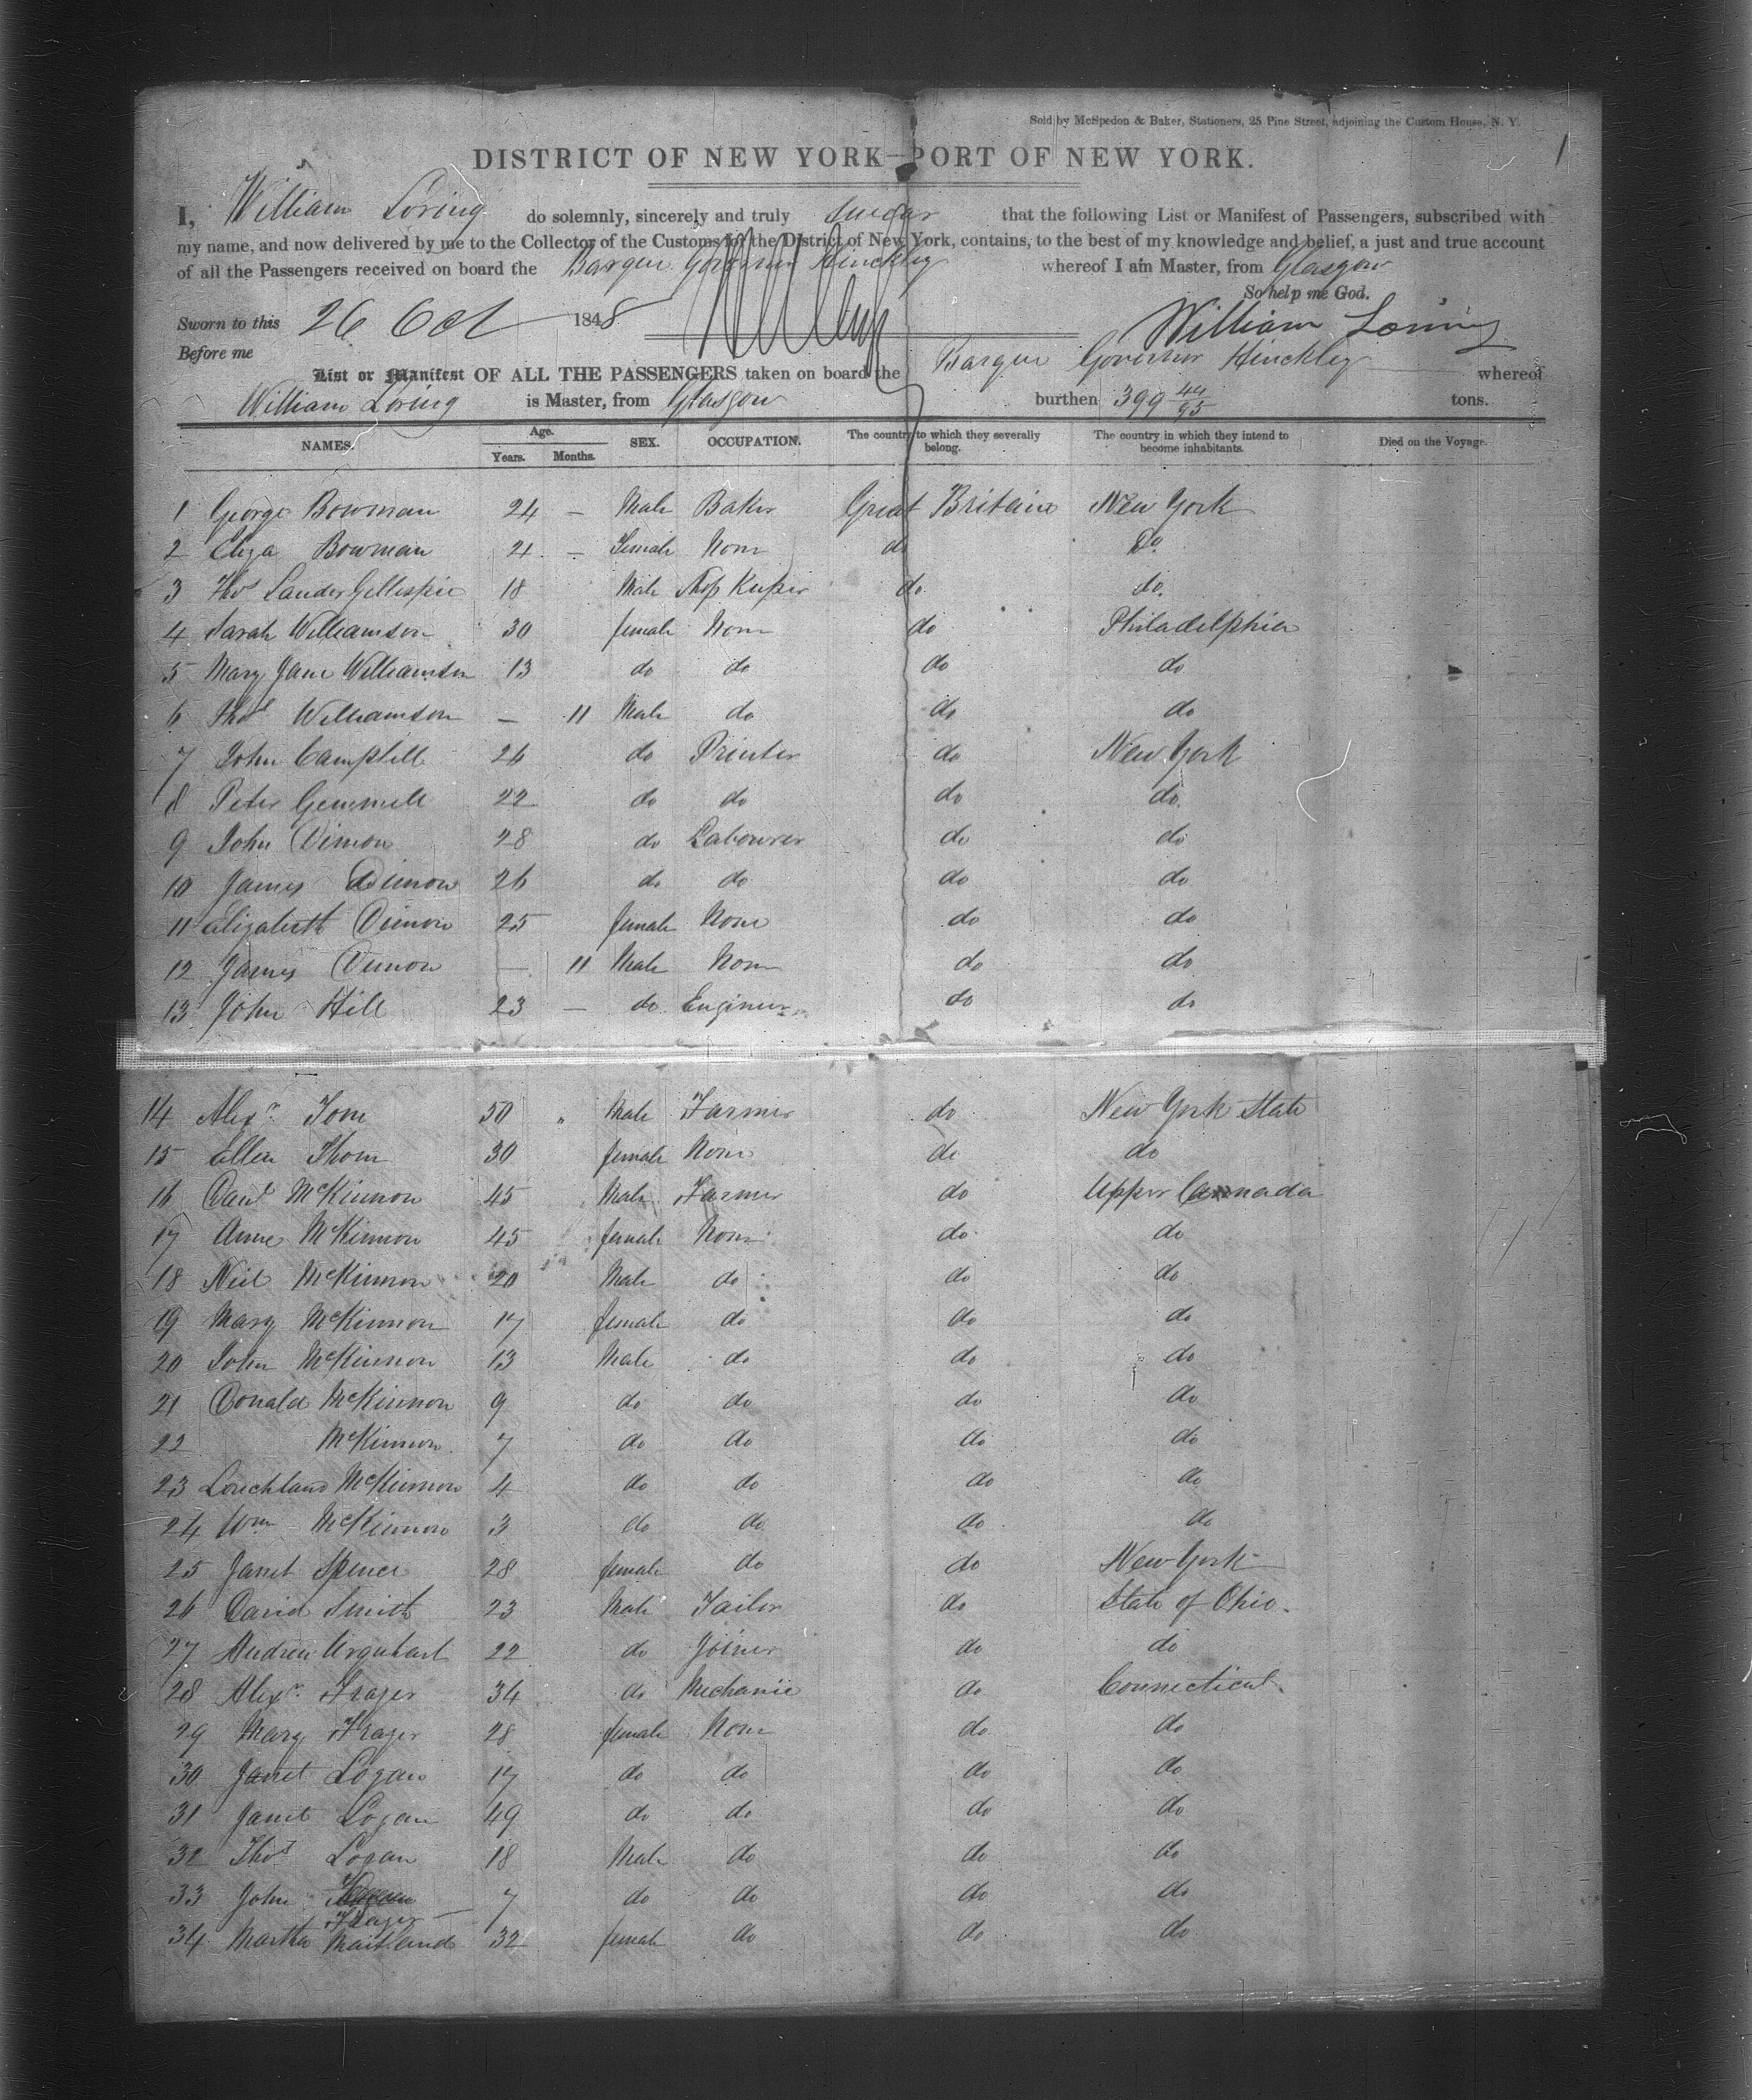 Sold by McSpedon & Baker, Stationers, 25 Pine Street, adjoining the Custom House, N. Y.
1
DISTRICT OF NEW YORK—PORT OF NEW YORK.
I, William Loring do solemnly, sincerely and truly Swear that the following List or Manifest of Passengers, subscribed with
my name, and now delivered by me to the Collector of the Customs for the District of New York, contains, to the best of my knowledge and belief, a just and true account
of all the Passengers received on board the Barque Governor Hinckley whereof I am Master, from Glasgow
So help me God.
Sworn to this 26 Oct 1848 William Loring
Before me
List or Manifest OF ALL THE PASSENGERS taken on board the Barque Governor Hinckley whereof
William Loring is Master, from Glasgow burthen 399 44/95 tons.
NAMES. Age. Years. Months. SEX. OCCUPATION. The country to which they severally belong. The country in which they intend to become inhabitants. Died on the Voyage.
1 George Bowman 24 — Male Baker Great Britain New York
2 Eliza Bowman 21 — Female None do Do
3 Thos Lauder Gillespie 18 Male Shop Keeper do do.
4 Sarah Williamson 30 female None do Philadelphia
5 Mary Jane Williamson 13 do do do do
6 Thos Williamson — 11 Male do do do
7 John Campbell 26 do Printer do New York
8 Peter Gemmell 22 do do do do
9 John Dimon 28 do Labourer do do
10 James Dimon 26 do do do do
11 Elizabeth Dimon 25 female None do do
12 James Dimon — 11 Male None do do
13 John Hill 23 — do Engineer do do
14 Alexr Tom 50 " Male Farmer do New York State
15 Ellen Thom 30 female None do do
16 Danl McKinnon 45 Male Farmer do Upper Cannada
17 Anne McKinnon 45 female None do do
18 Neil McKinnon 20 Male do do do
19 Mary McKinnon 17 female do do do
20 John McKinnon 13 Male do do do
21 Donald McKinnon 9 do do do do
22 McKinnon 7 do do do do
23 Lauchland McKinnon 4 do do do do
24 Wm McKinnon 3 do do do do
25 Janet Spence 28 female do do New York
26 David Smith 23 Male Tailor do State of Ohio.
27 Andrew Urquhart 22 do Joiner do do
28 Alexr Frazer 34 do Mechanic do Connecticut.
29 Mary Frazer 28 female None do do
30 Janet Logan 17 do do do do
31 Janet Logan 49 do do do do
32 Thos Logan 18 Male do do do
33 John Frazer — 7 do do do do
34 Martha Maitland 32 female do do do